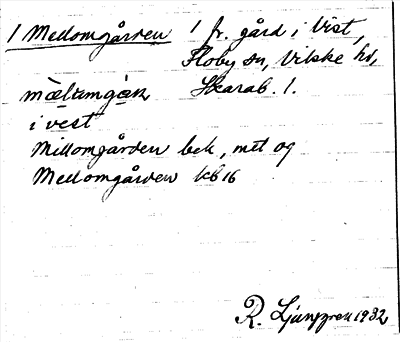 1 Medomgården 1 fr. gård i Vist,
Floby sn, Vilske hd,
Skarab. l.
i vest
Millomgården bek, mtl og
Medomgården kb 16
R. Ljunggren 1932